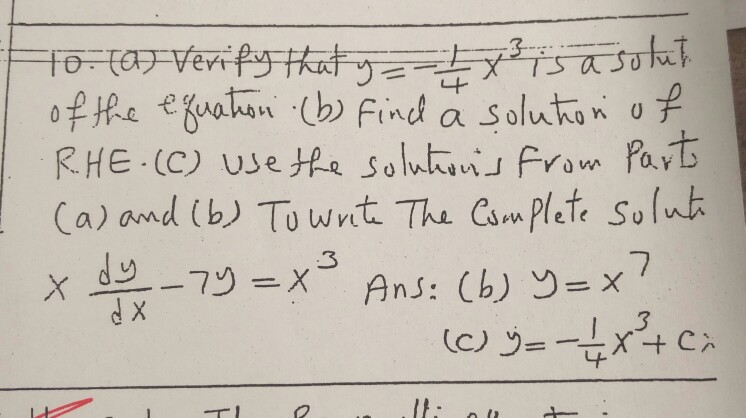 10. (a) Verify that y = -1/4 x³ is a solut
of the equation. (b) Find a solution of
RHE. (C) Use the solution's from Parts
(a) and (b) To write The Complete Solut
x dy/dx - 7y = x³ Ans: (b) y = x⁷
(c) y = -1/4 x³ + C